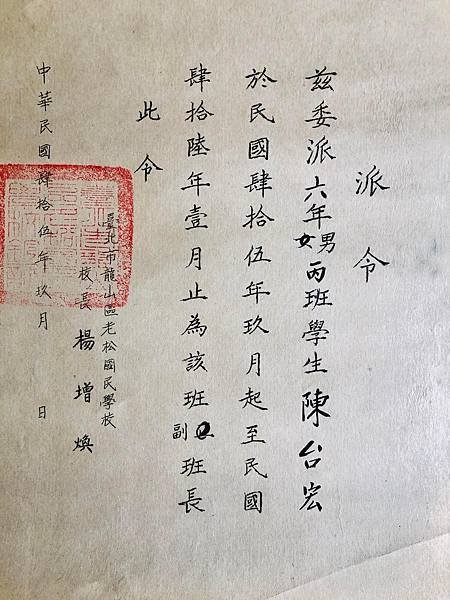 派令
茲委派六年男女丙班學生陳台宏
於民國肆拾伍年玖月起至民國
肆拾陸年壹月止為該班副班長
此令
臺北市龍山區老松國民學校
校長楊增煥
中華民國肆拾伍年玖月 日